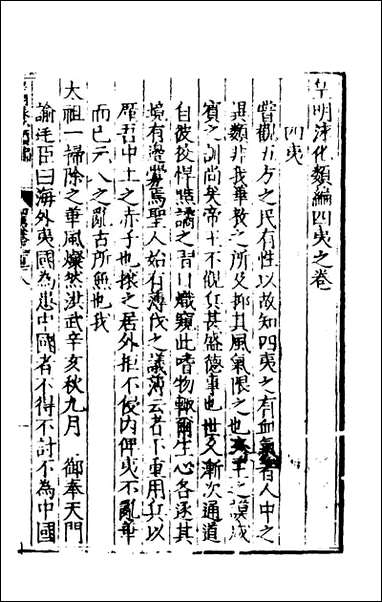 皇明泳化類編四夷之卷
四夷
嘗觀五方之民有性以故知四夷之有血氣者人中之
異類非我華教之所及邦其風氣限之也夷王之謨咸
賓之訓尚矣帝王不觀兵甚盛德事也世久漸次通道
自彼狡悍譎之習日熾窺此嗜物輙爾生心各逐其
境有邊釁焉聖人始有薄伐之議薄云者不重用兵以
壓吾中土之赤子也攘之居外拒不侵內俾夷不亂華
而已元人之亂古所無也我
太祖一掃除之華風燦然洪武辛亥秋九月 御奉天門
諭廷臣曰海外夷國為患中國者不得不討不為中國